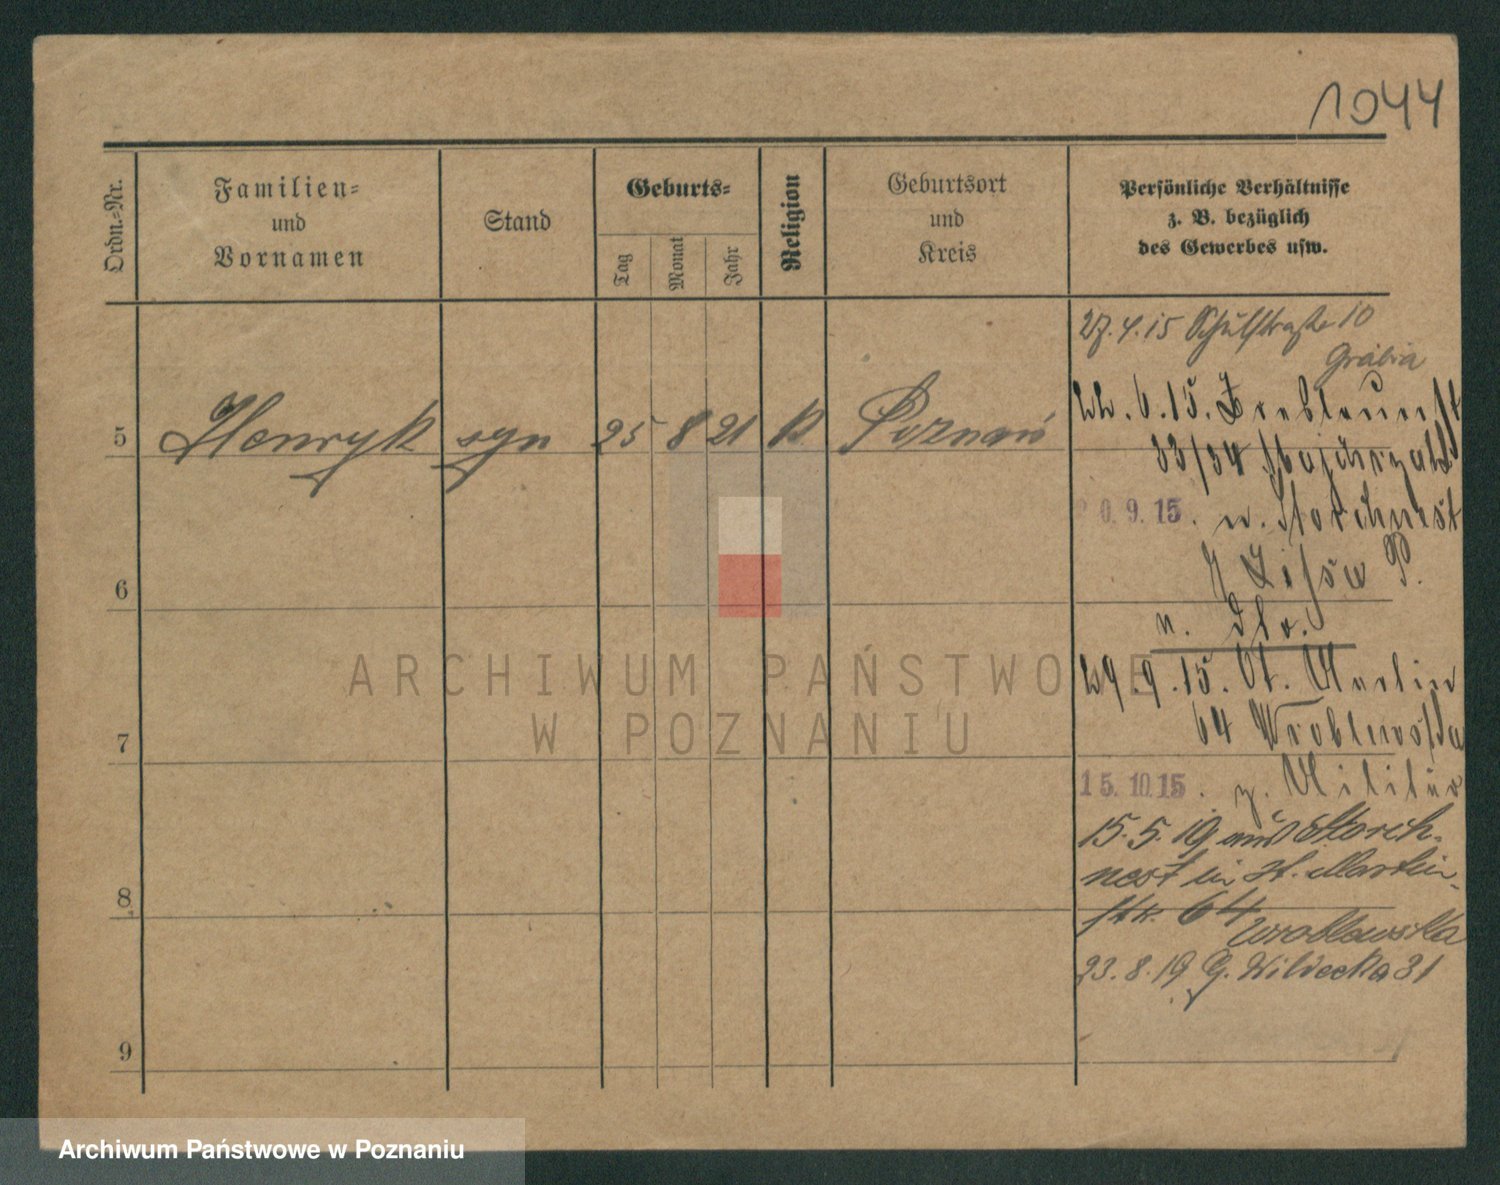 1044
Ordn.-Nr.
Familien-
und
Vornamen
Stand
Geburts-
Tag
Monat
Jahr
Religion
Geburtsort
und
Kreis
Persönliche Verhältnisse
z. B. bezüglich
des Gewerbes usw.
27.4.15 Schulstraße 10
Grabia
5 Henryk syn 25 8 21 k Poznań
22.6.15.
33/34
20.9.15. n. Storchnest
Lissa P.
6
n.
29.9.15. St. Martin
64 Wroblewska
7
15.10.15. z. Militär
15.5.19 aus Storch-
nest in St. Martin-
8
str. 64
Wroblewska
23.8.19 G. Wildecka 31
9
ARCHIWUM PAŃSTWOWE
W POZNANIU
Archiwum Państwowe w Poznaniu